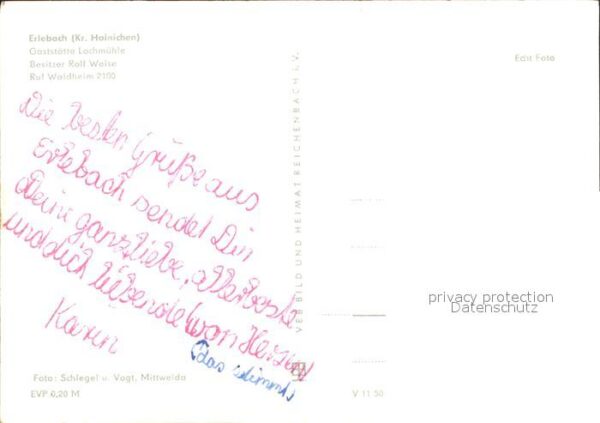 Erlebach (Kr. Hainichen)
Gaststätte Lochmühle
Besitzer Rolf Weise
Ruf Waldheim 2100
Echt Foto
Die besten Grüße aus
Erlebach sendet Dir
Deine ganzliebe, allerbeste
und dich liebende (von Herzen)
Karin
(das stimmt)
VEB BILD UND HEIMAT REICHENBACH i. V.
privacy protection
Datenschutz
Foto: Schlegel u. Vogt, Mittweida
EVP 0,20 M
V 11 50